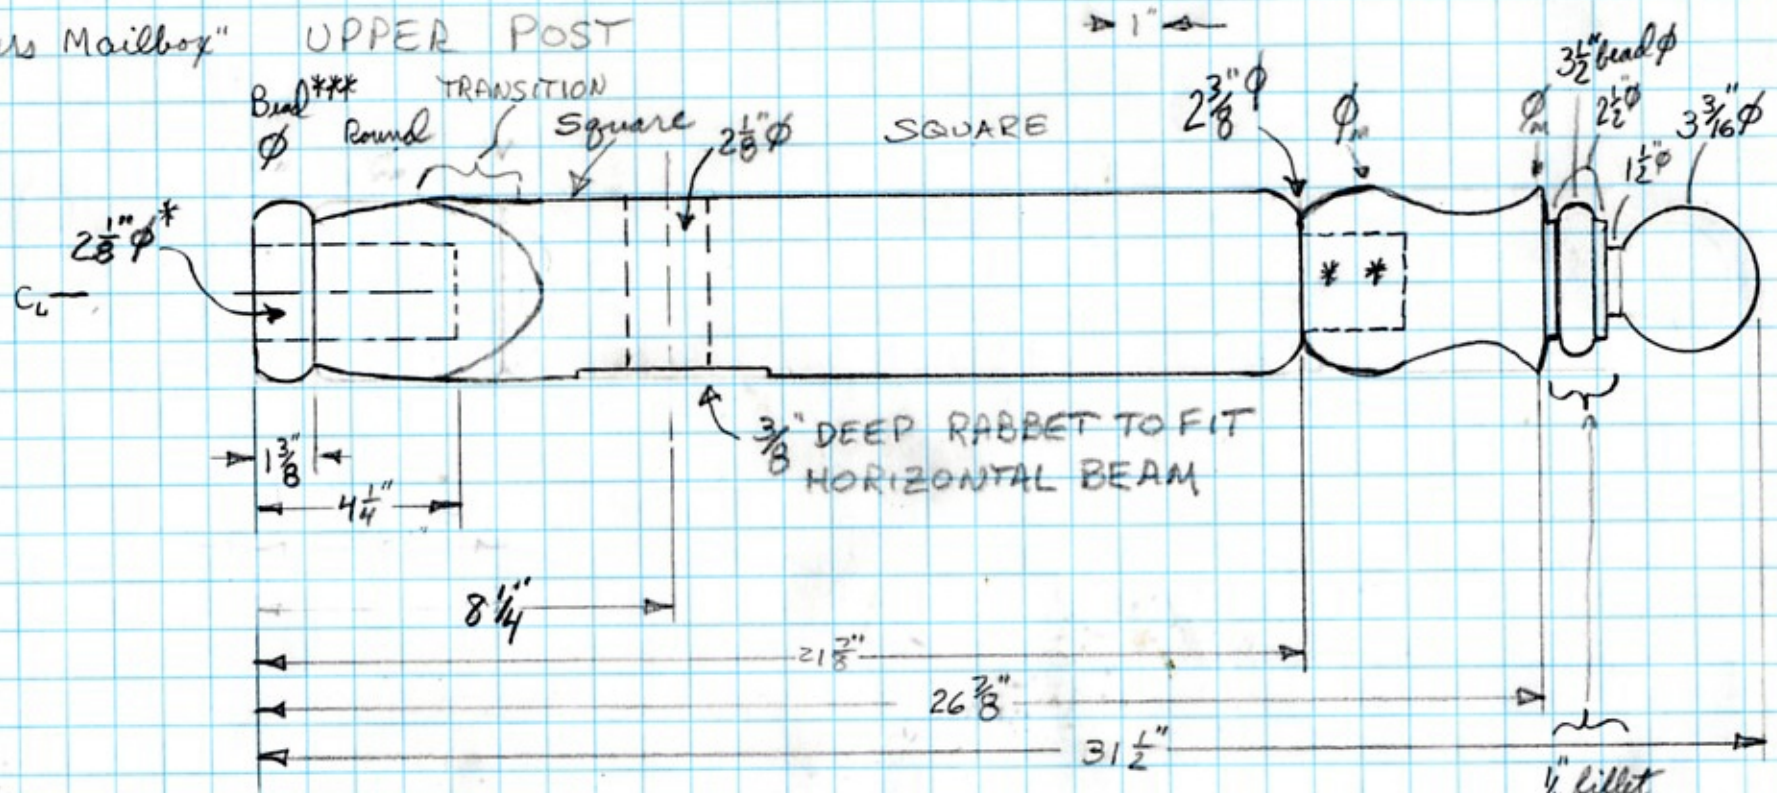 Mailbox" UPPER POST
1"
Bead*** TRANSITION
Ø Round Square 2 1/8" Ø SQUARE 2 3/8" Ø Øm Øm 3 1/2" bead Ø
2 1/2" Ø 3 3/16" Ø
1 1/2" Ø
2 1/8" Ø*
CL
* *
1 3/8"
4 1/4"
3/8" DEEP RABBET TO FIT
HORIZONTAL BEAM
8 1/4"
21 7/8"
26 7/8"
31 1/2"
fillet